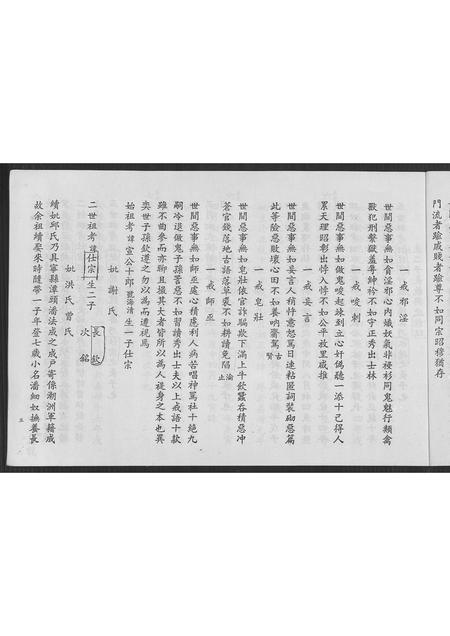 門流者騐咸賤者騐尊不如同宗昭穆猶存
一戒邪淫
世間惡事無如貪淫邪心內孅妖氣非稜衫同鬼魅行類禽
獸犯刑繫獄羞辱紳衿不如守正秀出士林
一戒唆刺
世間惡事無如做鬼唆起訴到立心奸偽聽一派十己得人
累天理昭彰出悖入悖不如公平故里咸推
一戒妄言
世間惡事無如妄言人稍忤意怒罵日連粘匿詞裝砌惡篇
此等險惡敗壞心田不如養吶齋罵古賢
一戒皂壯
世間惡事無如皂壯依官詐騙欺下滿上牛飲蠶吞積惡冲
蒼官錢落地古語落草裘不如耕讀免陷淪止
一戒師巫
世間惡事無如師巫處心積慮利人病苦唱神罵社十絕九
嗣冷退做鬼子孫蒈惡不如習讀秀出士夫以上戒語十款
雖不曲參而亦聊且撮其大者皆所以為人禔身之本也異
奕世子孫欽遵之勿以為而違視焉
始祖考諱宣公十郎號海清生一子仕宗
妣謝氏
二世祖考諱仕宗生二子長欽次銘
妣洪氏曾氏
續妣邱氏乃具寧縣潭頭潘法成之成戶寄係潮洲軍籍咸
故余祖續娶來時隨帶一子年登七歲小名潘細奴撫養長
五